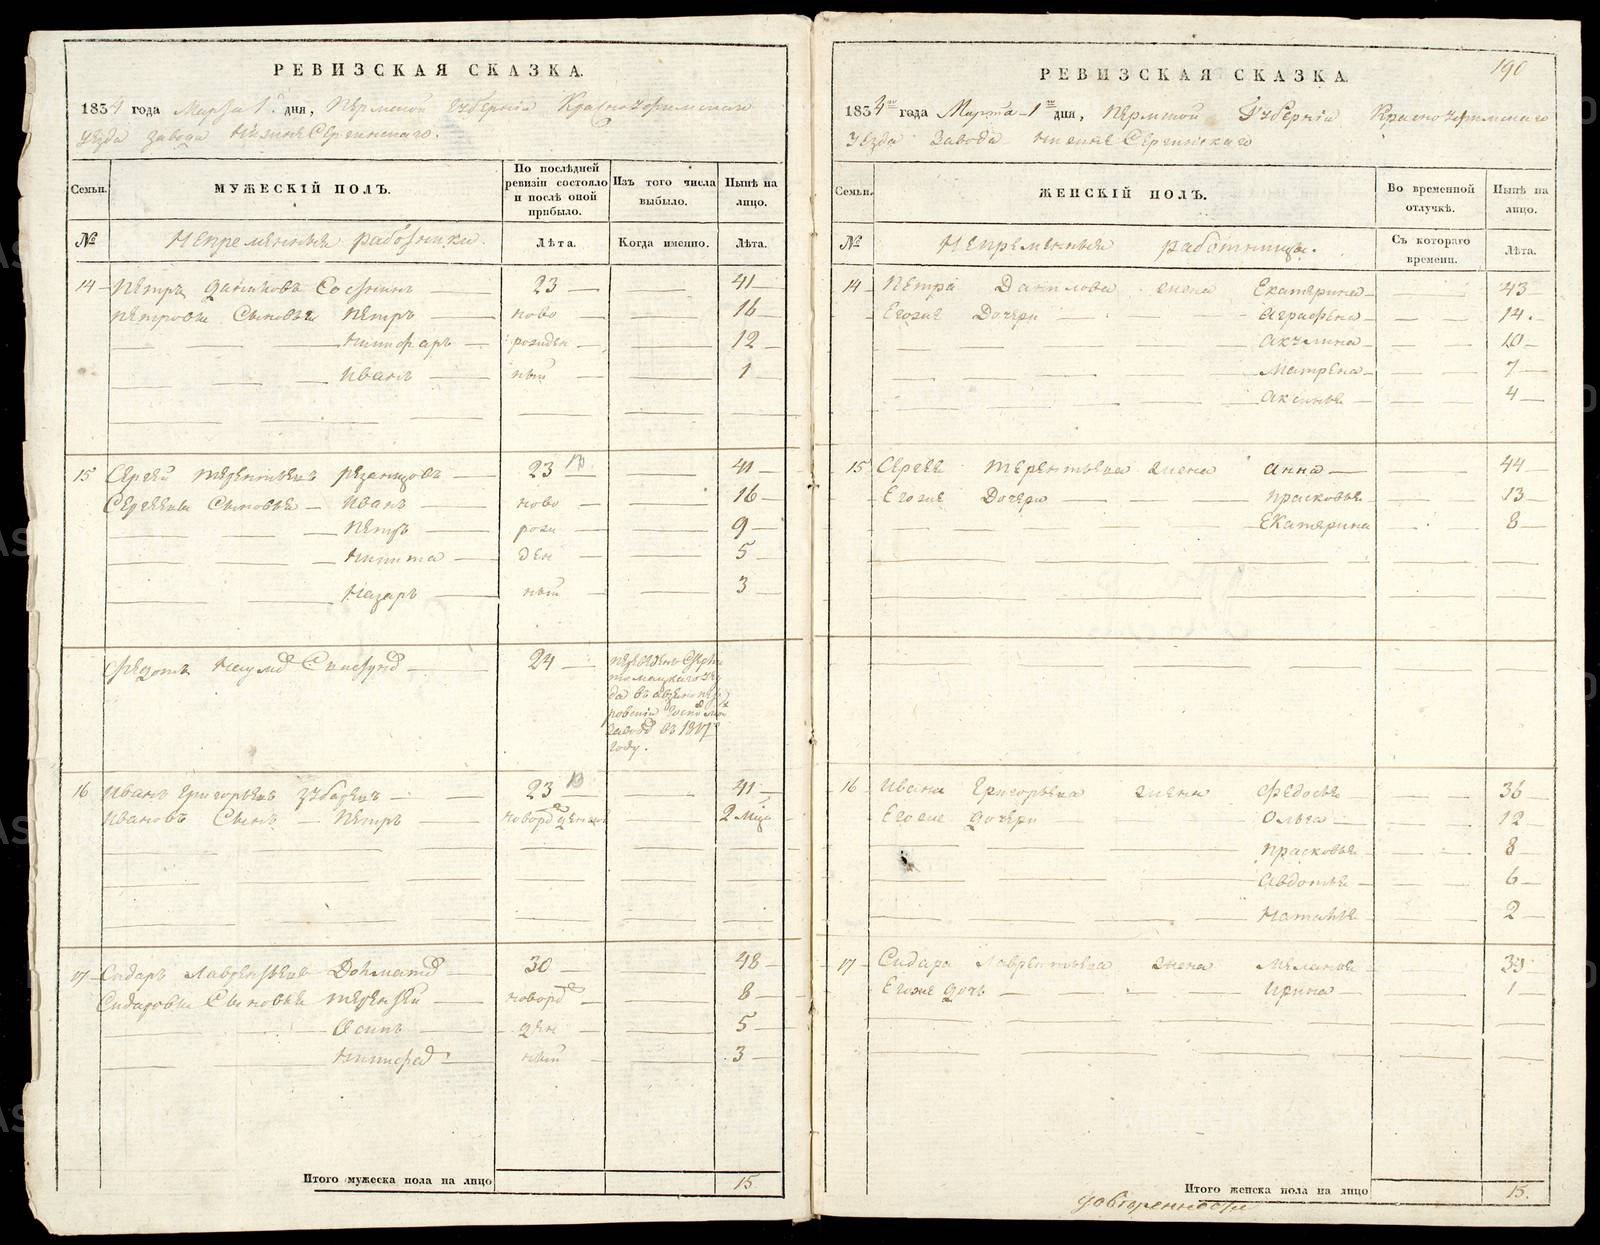 РЕВИЗСКАЯ СКАЗКА.
1834 года Марта 1 дня, Пермской Губерніи Красноуфимскаго
уезда завода Нижне Сергинскаго.
Семьи. МУЖЕСКІЙ ПОЛЪ. По послѣдней ревизіи состояло и послѣ оной прибыло. Изъ того числа выбыло. Нынѣ на лицо.
№ Непременныя работники. Лѣта. Когда именно. Лѣта.
14 Петръ Даниловъ 23 41
Петровы Сыновья Петръ ново 16
рожден 12
Иванъ ный 1
15 Сергей Терентьевъ 23 41
Сергеевы Сыновья Иванъ ново 16
Петръ рож 9
Никита ден 5
Назаръ ный 3
24
году.
16 Иванъ Григорьевъ 23 41
Ивановъ Сынъ Петръ 2
17 Сидаръ Лаврентьевъ 30 48
Сидаровы Сыновья Терентей новорож 8
Осипъ ден 5
ный 3
Итого мужеска пола на лицо 15
190
РЕВИЗСКАЯ СКАЗКА
1834 года Марта 1 дня, Пермской Губерніи Красноуфимскаго
Уезда Завода Нижне Сергинскаго
Семьи. ЖЕНСКІЙ ПОЛЪ. Во временной отлучкѣ. Нынѣ на лицо.
№ Непременныя работницы. Съ котораго времени. Лѣта.
14 Петра Данилова жена Екатерина 43
Егоже Дочери Аграфена 14.
Акулина 10
Матрена 7
Аксинья 4
15 Сергея Терентьева жена Анна 44
Егоже Дочери Прасковья 13
Екатерина 8
16 Ивана Григорьева жена Федосья 36
Егоже дочери Ольга 12
Прасковья 8
Авдотья 6
Наталья 2
17 Сидара Лаврентьева жена 39
Егоже дочь Ирина 1
Итого женска пола на лицо 15.